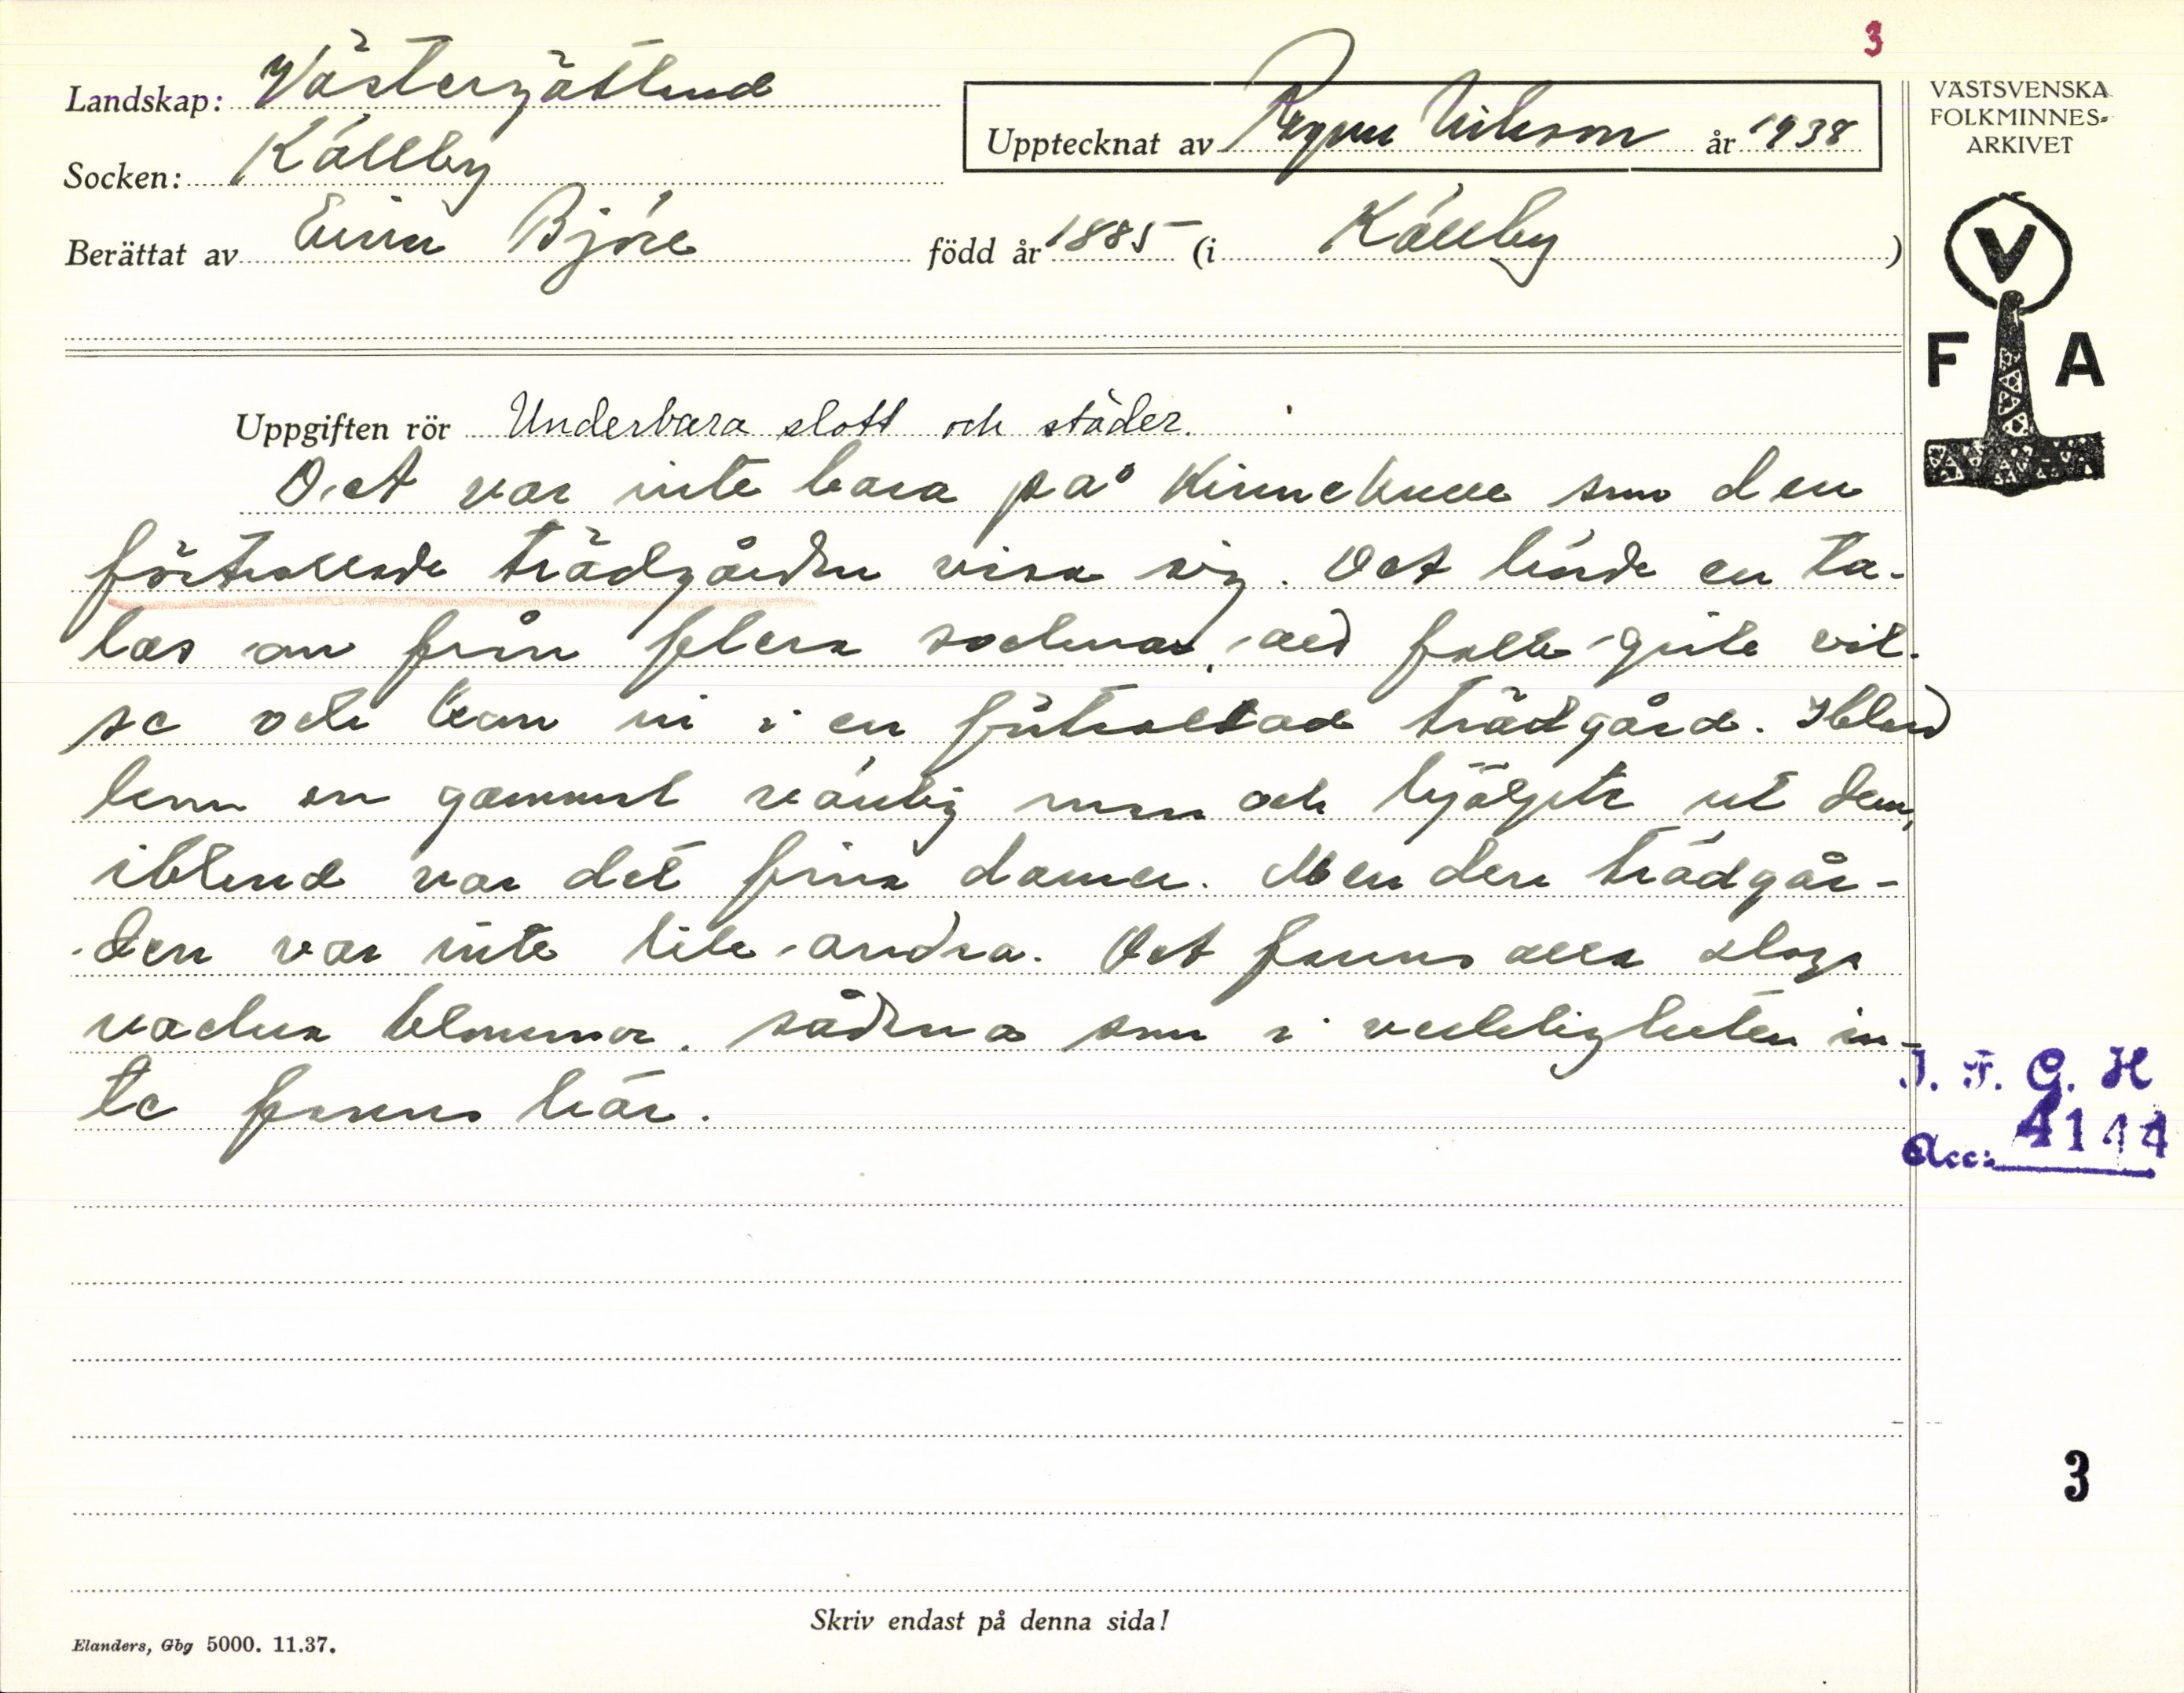 3
Landskap: Västergötland
Upptecknat av Ragnar Nilsson år 1938
VÄSTSVENSKA
FOLKMINNES-
ARKIVET
Socken: Källby
Berättat av Björk född år 1885 (i Källby)
V
F A
Uppgiften rör Underbara slott och städer.
Det var inte bara på Kinnekulle som den
förtrollade trädgården visa sig. Det hörde en ta-
las om från flera socknar, att folk gick vil-
se och kom in i en förtrollad trädgård. Ibland
kom en gammal vänlig man och hjälpte ut dem,
ibland var det fina damer. Men den trädgår-
den var inte lik andra. Det fanns alla slags
vackra blommor, sådna som i verkligheten in-
te fanns här.
I. F. G. H
Acc: 4144
3
Skriv endast på denna sida!
Elanders, Gbg 5000. 11.37.